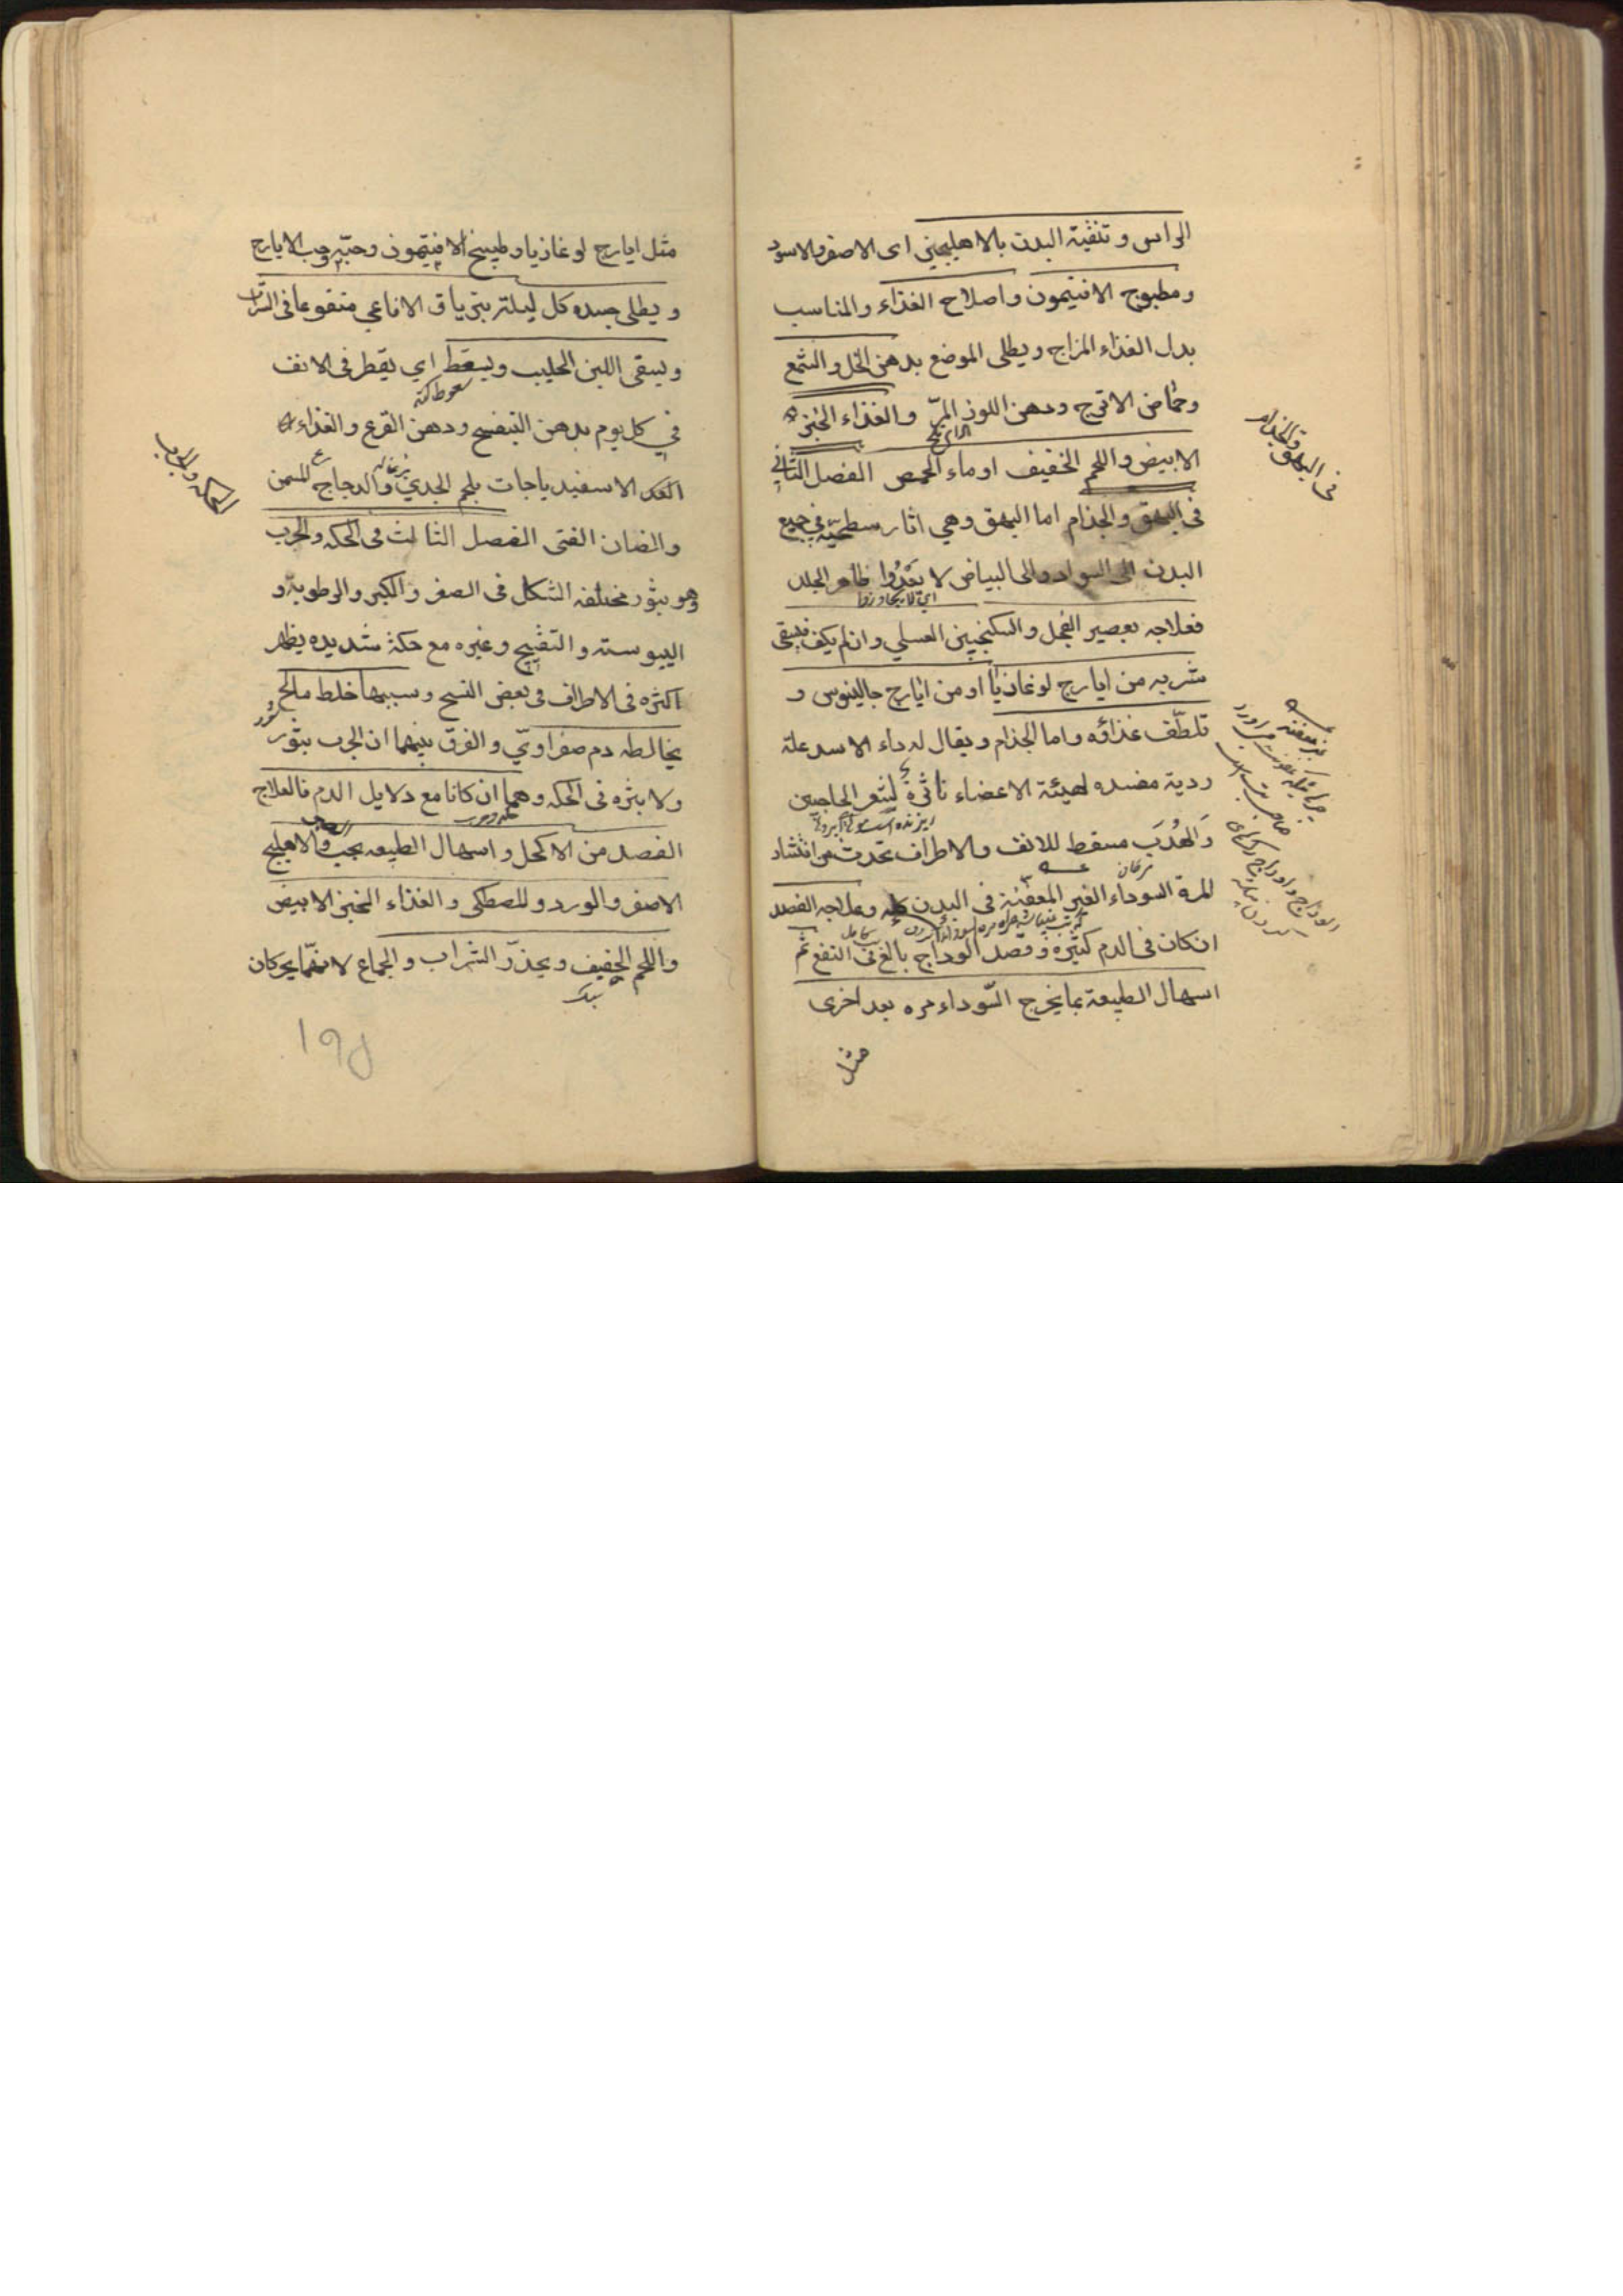 الراس و تنقية البدن بالاهليلجين اى الاصفر والاسود
ومطبوخ الافتيمون واصلاح الغذاء والمناسب
بدل الغذاء المزاج ويطلى الموضع بدهن الخل والشمع
وحماض الاترج ودهن اللوز المرّ والغذاء الخبز
الابيض واللحم الخفيف او ماء الحمص الفصل الثاني
فى البهق والجذام اما البهق وهي اثار سطحيّة في جميع
البدن الى السواد والى البياض لا يعدوا ظاهر الجلد
اى لا يتجاوزوا
فعلاجه بعصير الفجل والسكنجبين العسلي وان لم يكف فيسقى
شربه من ايارج لوغاذيا او من ايارج جالينوس و
تلطّف غذاؤه واما الجذام ويقال له داء الاسد علة
ردية مفسده لهيئة الاعضاء ناثرة لشعر الحاجبين
وَالهُدبَ مسقط للانف والاطراف تحدث من انتشار
المرة السوداء الغير المعفنة فى البدن كله وعلاجه الفصد
ان كان فى الدم كثيرة وفصد الوداج بالغ فى النفع ثم
اسهال الطبيعة بما يخرج السّوداء مره بعد اخرى
مثل
فى البهق والجذام
مثل ايارج لوغاذيا وطبيخ الافتيمون وحبّه وحب الايارج
و يطلى جسده كل ليلة بترياق الافاعي منقوعا فى الشراب
ويسقى اللبن الحليب ويسقط اي يقطر فى الانف
في كل يوم بدهن البنفسج ودهن القرع والغذاء
الاسفيدياجات بلحم الجدي والدجاج المسمن
والضان الفتى الفصل الثالث فى الحكه والجرب
وهو بثور مختلفه الشكل فى الصغر والكبر والرطوبة و
اليبوسته والتقيح وغيره مع حكة شديده يظهر
اكثره فى الاطراف وسببها خلط مالح
يخالطه دم صفراويّ والفرق بينهما ان الجرب بثور
ولا بثره فى الحكه وهما ان كانا مع دلايل الدم فالعلاج
الفصد من الاكحل واسهال الطبيعه بحب الاهليلج
الاصفر والورد والمصطكى والغذاء الخبز الابيض
واللحم الخفيف ويحذر الشراب والجماع لانهما يحركان
الحكه والجرب